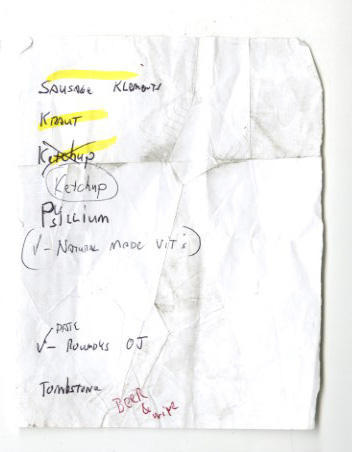 Sausage Klements
Kraut
Ketchup
Ketchup
Psyllium
(✓- Natural made vit's)
Date
✓- Roundys OJ
Tombstone
Beer
&